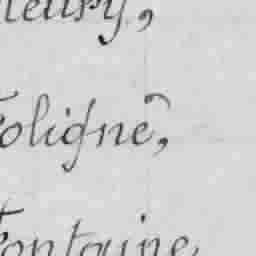 fleury,
Foligné,
Fontaine